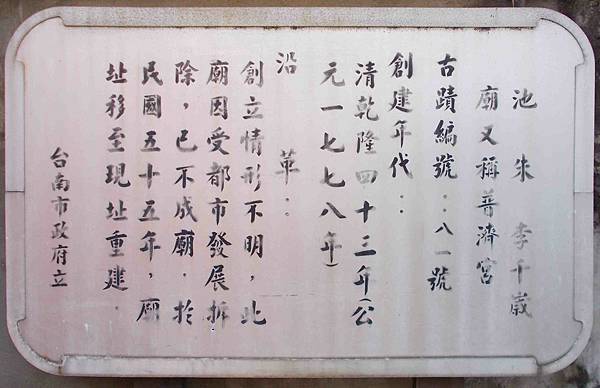 池朱李千歲
廟又稱普濟宮
古蹟編號：八一號
創建年代：
清乾隆四十三年(公
元一七七八年)
沿革：
創立情形不明，此
廟因受都市發展拆
除，已不成廟．於
民國五十五年，廟
址移至現址重建．
台南市政府立